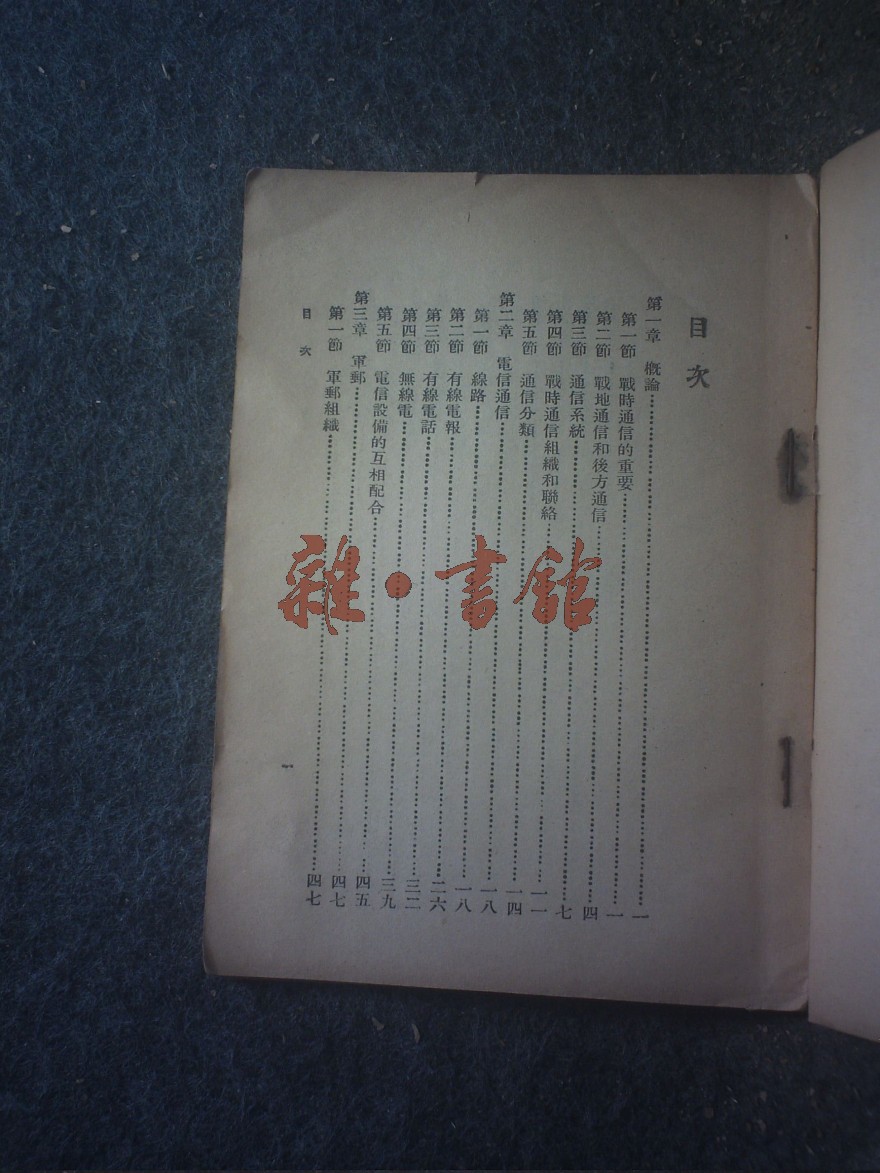 目次
第一章 概論……一
第一節 戰時通信的重要……一
第二節 戰地通信和後方通信……四
第三節 通信系統……七
第四節 戰時通信組織和聯絡……一一
第五節 通信分類……一四
第二章 電信通信……一八
第一節 線路……一八
第二節 有線電報……二六
第三節 有線電話……三二
第四節 無線電……三九
第五節 電信設備的互相配合……四五
第三章 軍郵……四七
第一節 軍郵組織……四七
目次
一
雜·書館